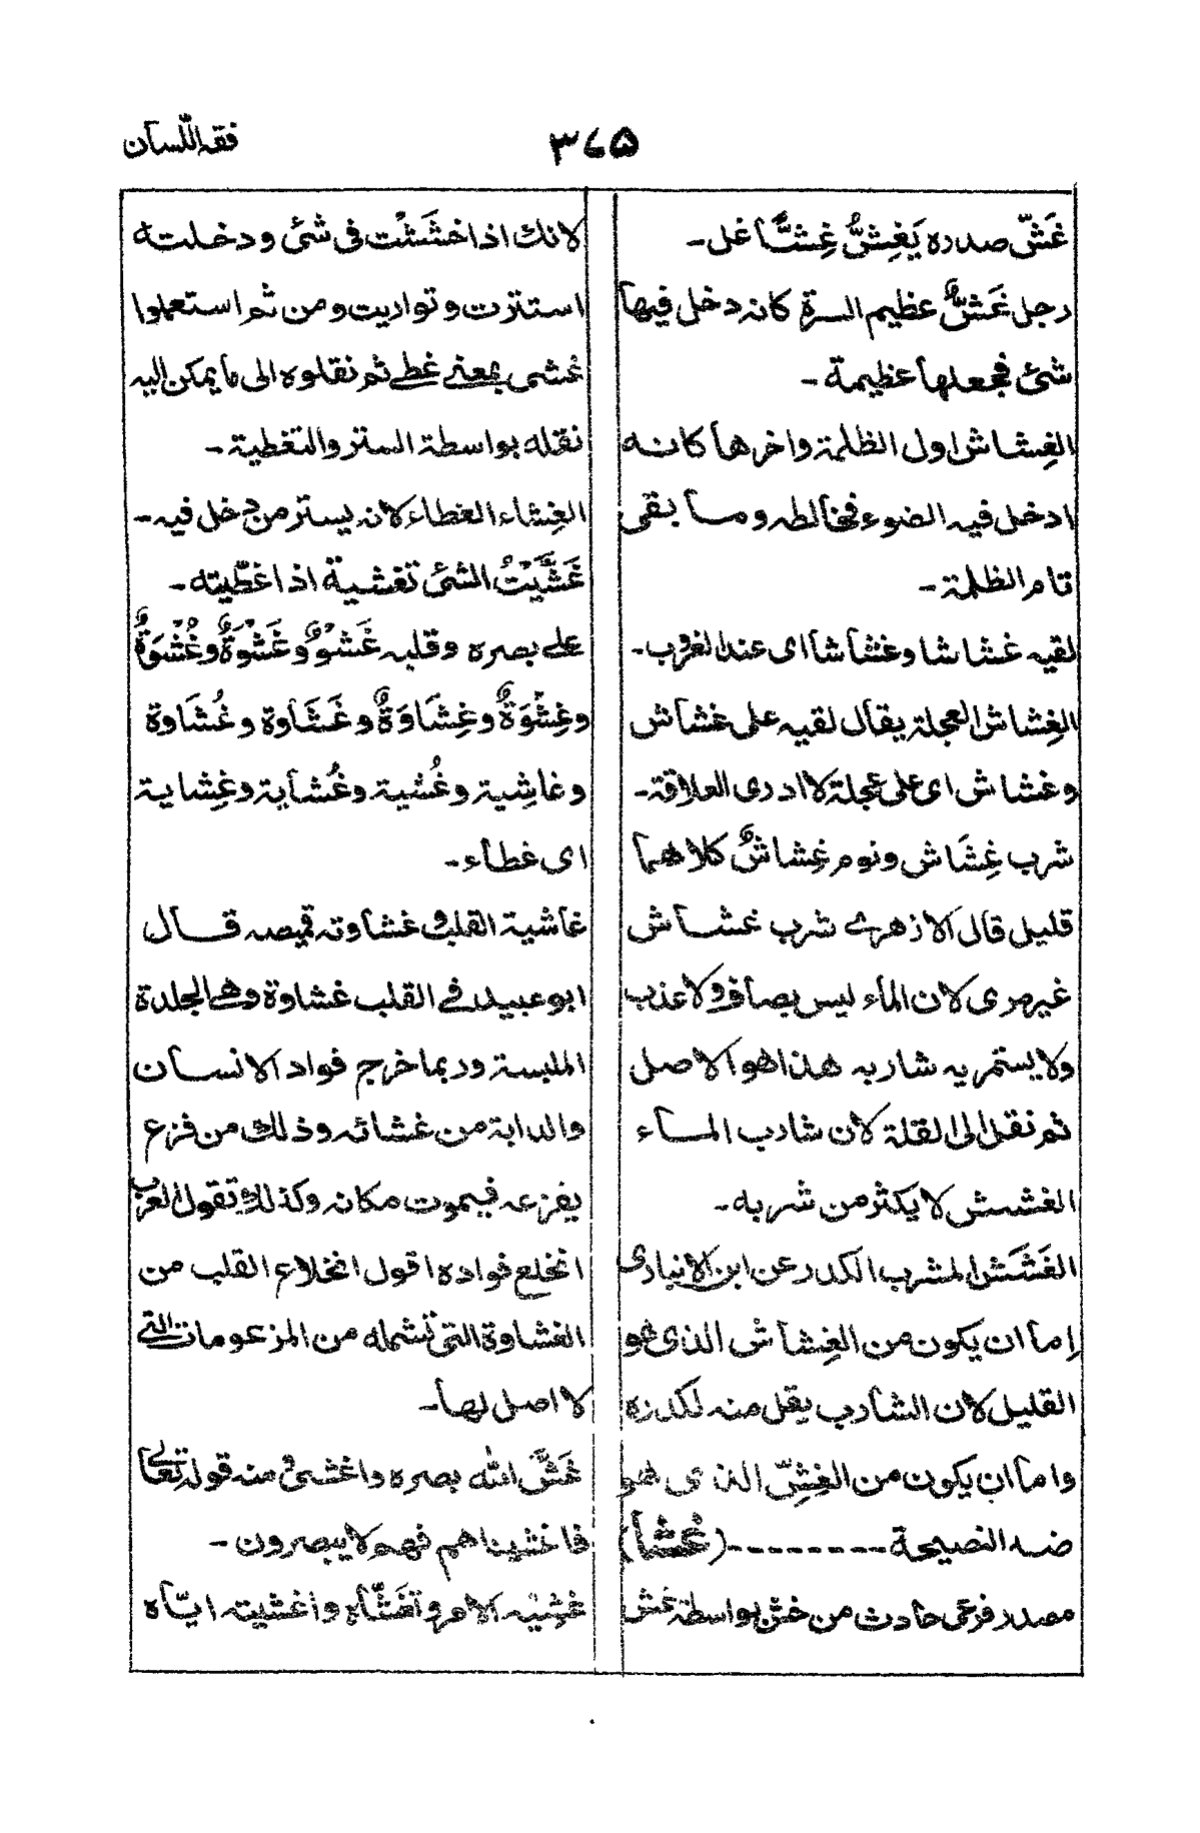 فقه اللسان
٣٧٥
غَشّ صدره يَغِشُّ غِشًّا غل۔
رجل غَشٌّ عظيم السرة كانه دخل فيها
شئ فجعلها عظيمة۔
الغِشاش اول الظلمة واخرها كانه
ادخل فيه الضوء فخالطه وما بقى
تام الظلمة۔
لقيه غشاشا وغشاشا اى عند الغروب۔
الغِشاش العجلة يقال لقيه على غشاش
وغشاش اى على عجلة لا ادرى العلاقة۔
شرب غِشَاش ونوم غِشاشٌ كلاهما
قليل قال الازهرے شرب غشاش
غير مرى لان الماء ليس بصاف ولا عذب
ولا يستمريه شاربه هذا هو الاصل
ثم نقل الى القلة لان شارب الماء
الغشش لا يكثر من شربه۔
الغَشَش المشرب الكدر عن ابن الانبارى
إما ان يكون من الغِشاش الذى هو
القليل لان الشارب يقل منه لكدره
واما ان يكون من الغِشّ الذى هو
ضد النصيحة --------(غُشاً)
مصدر فرعى حادث من خش بواسطة غش
لانك اذا خشَشْت فى شئ ودخلته
استترت وتواريت ومن ثم استعملوا
غشى بمعنے غطے ثم نقلوه الى ما يمكن اليه
نقله بواسطة الستر والتغطية۔
الغِشاء الغطاء لانه يستر من دخل فيه۔
غَشَّيْتُ الشئ تغشية اذا غطّيته۔
علے بصره وقلبه غَشْوٌ وغَشْوَةٌ وغُشْوَةٌ
وغِشْوَةٌ وغِشَاوَةٌ وغَشَاوة وغُشَاوة
وغاشِية وغُشية وغُشاية وغِشاية
اى غطاء۔
غاشية القلب وغشاوته قميصه قال
ابو عبيد فے القلب غشاوة وهے الجلدة
الملبسة وربما خرج فواد الانسان
والدابة من غشائه وذلك من فزع
يفزعه فيموت مكانه وكذلك تقول العرب
انخلع فواده اقول انخلاع القلب من
الغشاوة التى تشمله من المزعومات التے
لا اصل لها۔
غَشَّى الله بصره واغشى ومنه قوله تعالے
فاغشيناهم فهم لا يبصرون۔
غشِيَه الامر وتغَشَّاه واغشيته ايّاه